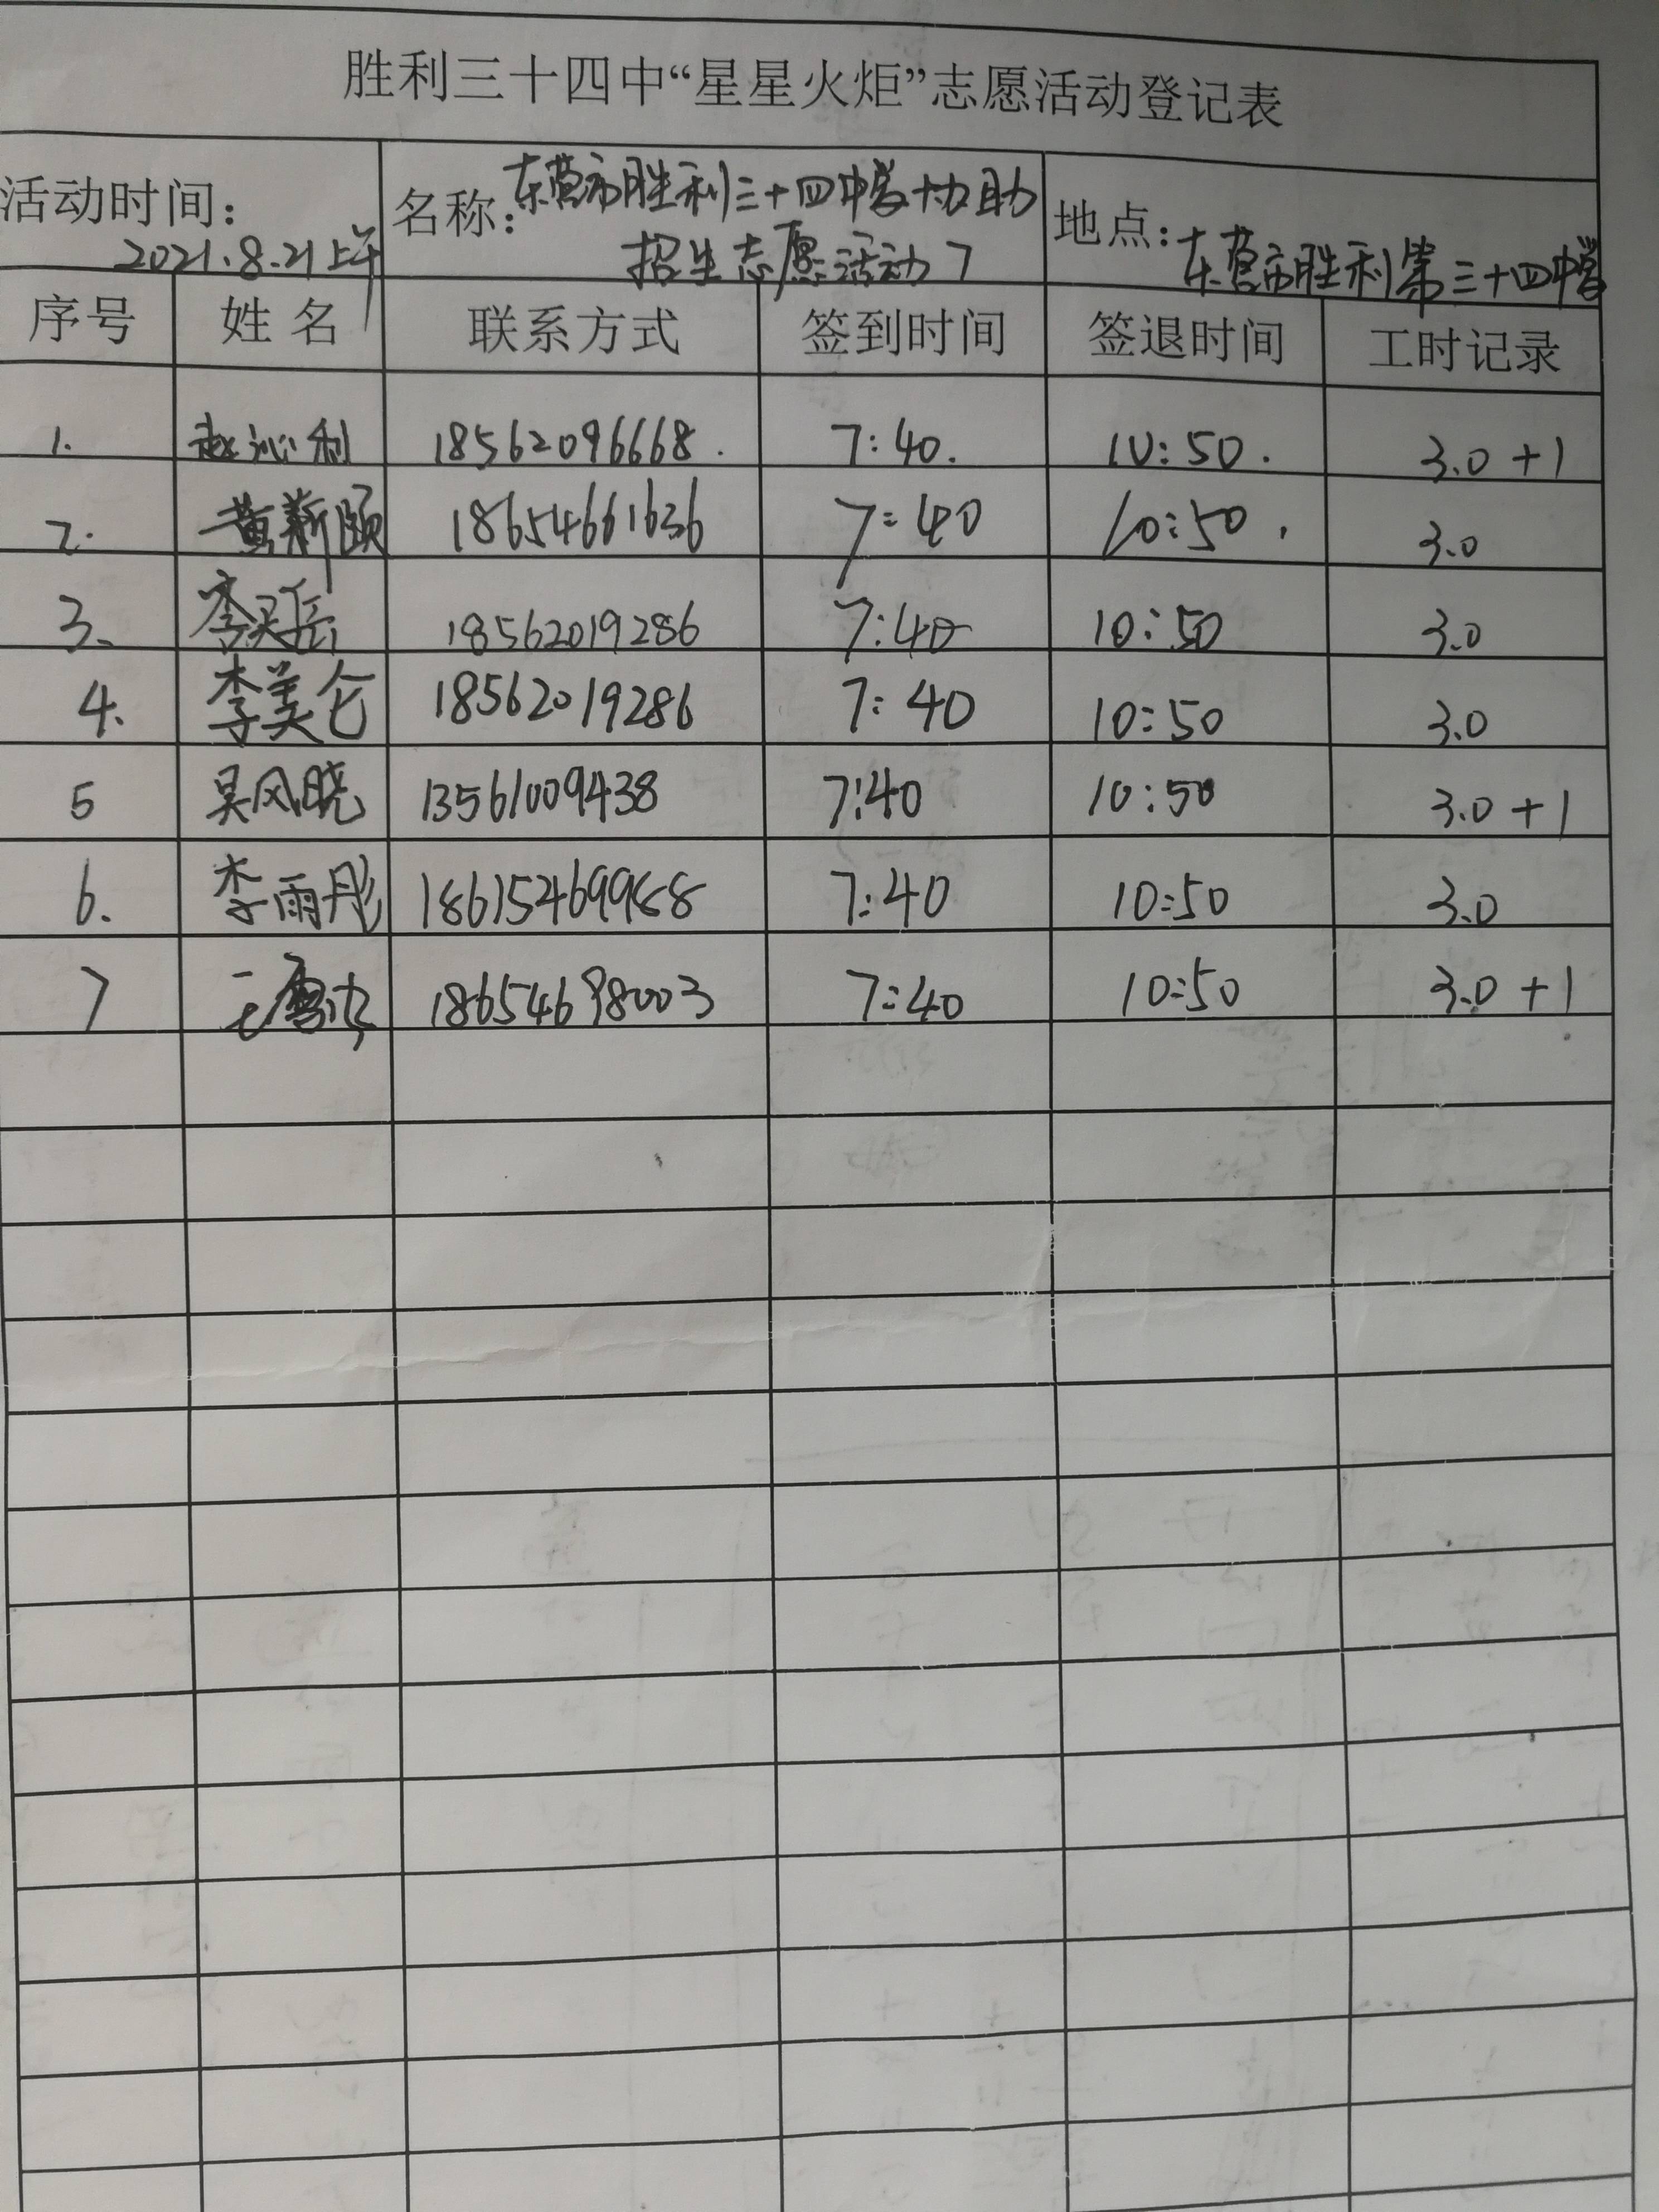 胜利三十四中“星星火炬”志愿活动登记表
活动时间： 2021.8.21上午 名称：东营市胜利三十四中学协助招生志愿活动7 地点：东营市胜利第三十四中学
序号 姓名 联系方式 签到时间 签退时间 工时记录
1. 赵沁利 18562096668. 7:40. 10:50. 3.0 +1
2. 黄新颐 18654661636 7:40 10:50. 3.0
3、 李昊岳 18562019286 7:40 10:50 3.0
4. 李美仑 18562019286 7:40 10:50 3.0
5 吴风晓 13561009438 7:40 10:50 3.0 +1
6. 李雨彤 18615469988 7:40 10:50 3.0
7 18654698003 7:40 10:50 3.0 +1